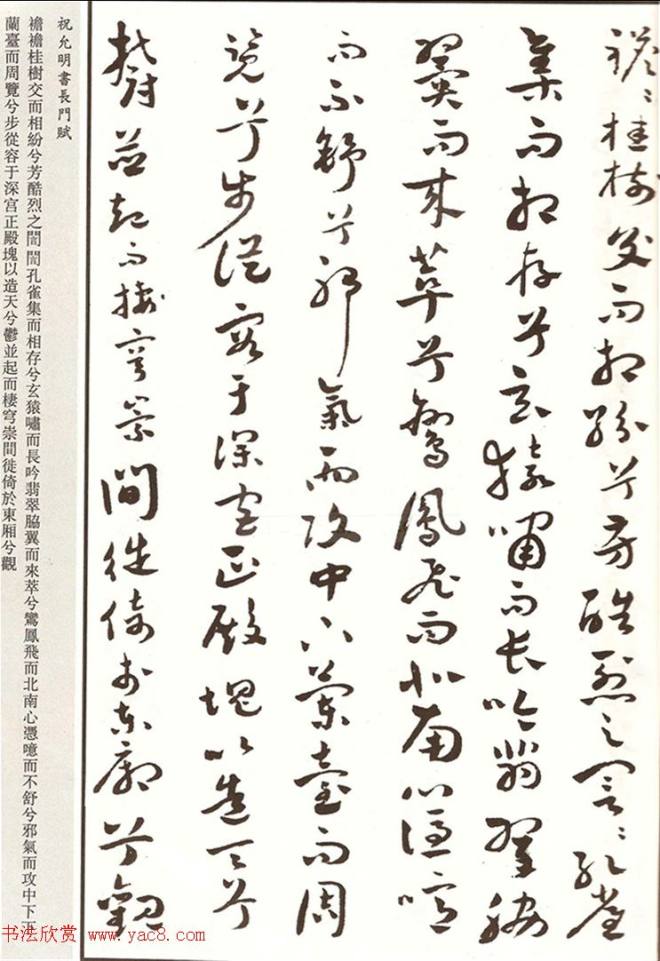 襜々桂樹交而相紛兮芳酷烈之誾々孔雀
集而相存兮玄猿嘯而長吟翡翠脇
翼而來萃兮鸞鳳飛而北南心憑噫
而不舒兮邪氣而攻中下蘭臺而周
覽兮步從容于深宮正殿塊以造天兮
鬱並起而棲穹崇間徙倚於東廂兮觀
祝允明書長門賦
襜襜桂樹交而相紛兮芳酷烈之誾誾孔雀集而相存兮玄猿嘯而長吟翡翠脇翼而來萃兮鸞鳳飛而北南心憑噫而不舒兮邪氣而攻中下
蘭臺而周覽兮步從容于深宮正殿塊以造天兮鬱並起而棲穹崇間徙倚於東廂兮觀
书法欣赏 www.yac8.com